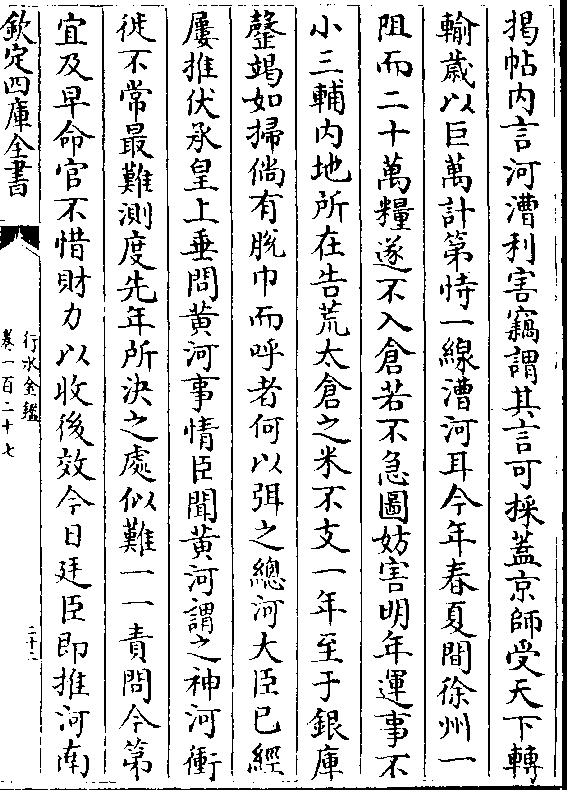 掲帖内言河漕利害竊謂其言可採蓋京師受天下轉
輸嵗以巨萬計第恃一線漕河耳今年春夏間徐州一
阻而二十萬糧遂不入倉若不急圖妨害明年運事不
小三輔内地所在告荒太倉之米不支一年至于銀庫
罄竭如掃倘有脱巾而呼者何以弭之總河大臣已經
屢推伏承皇上垂問黄河事情臣聞黄河謂之神河衝
徙不常最難測度先年所決之處似難一一責問今第
宜及早命官不惜財力以收後效今日廷臣即推河南
欽定四庫全書
行水金鑑
卷一百二十七